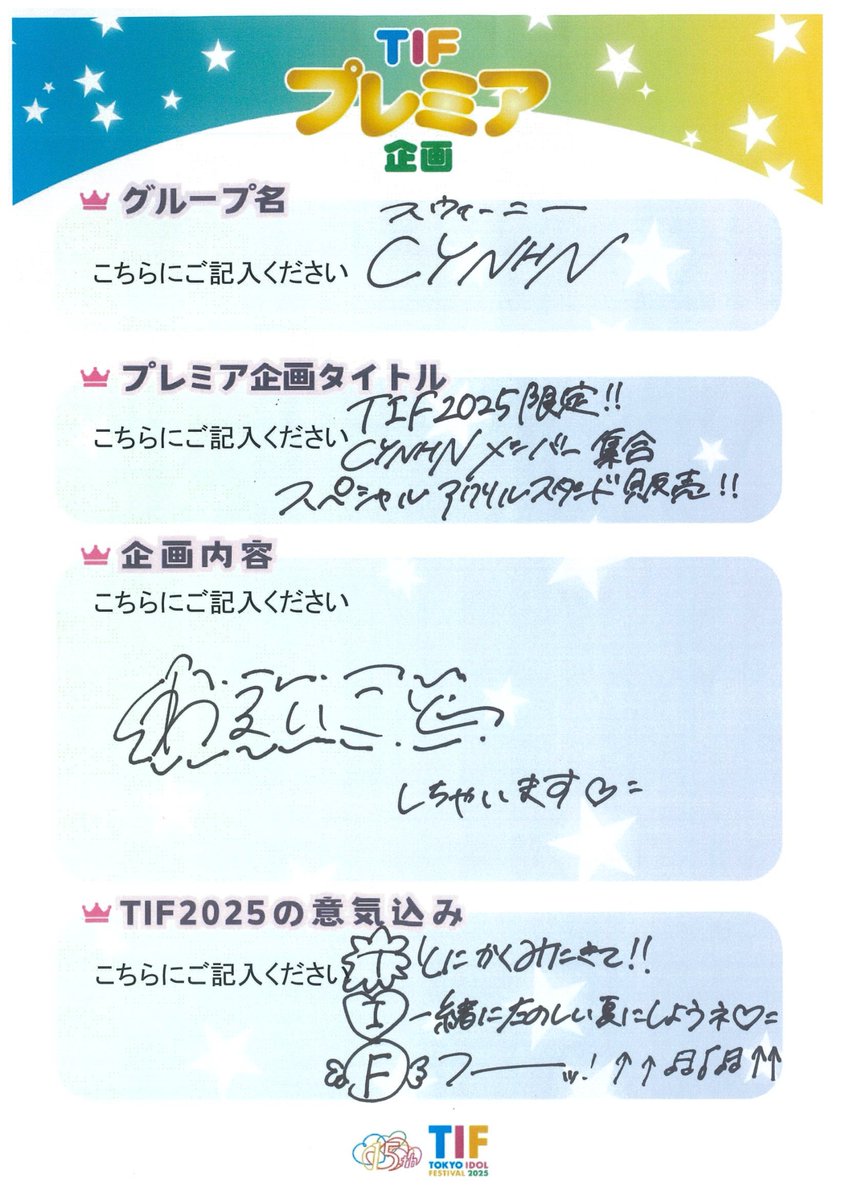 TIF
プレミア
企画
グループ名
スウィーニー
こちらにご記入ください CYNHN
プレミア企画タイトル
TIF2025限定!!
こちらにご記入ください CYNHNメンバー集合
スペシャルアクリルスタンド販売!!
企画内容
こちらにご記入ください
しちゃいます♡=
TIF2025の意気込み
こちらにご記入ください T とにかくみにきて!!
I 一緒にたのしい夏にしようネ♡=
F フーーーッ!↑↑♫♪♫↑↑
15th TIF
TOKYO IDOL
FESTIVAL 2025